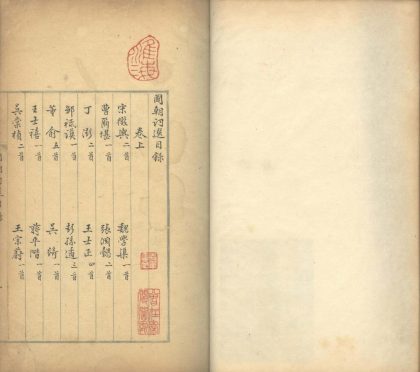 國朝詞選目錄
卷上
宋徵輿二首 魏學渠一首
曹爾堪一首 張淵懿二首
丁澎二首 王士正四首
鄒祗謨一首 彭孫遹三首
董俞五首 吳綺一首
王士禧一首 蔣平階一首
吳棠楨二首 王宗蔚一首